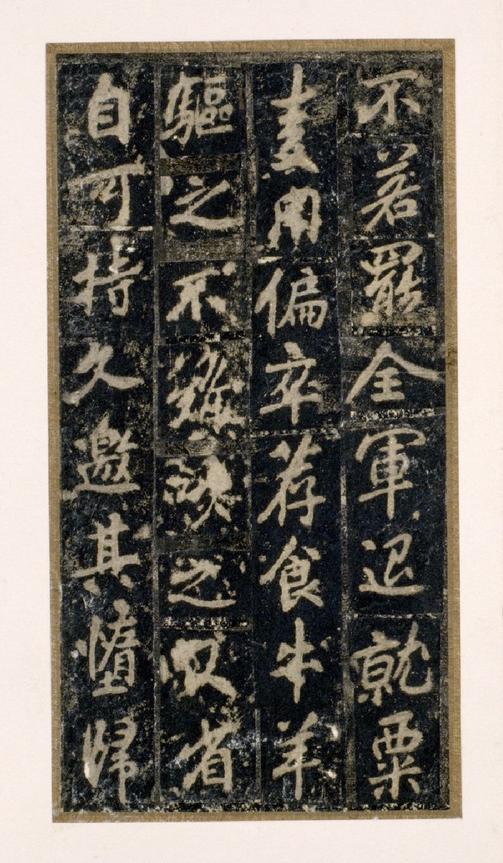 不若罷全軍退就粟
麦用偏卒荐食牛羊
驅之不難之又省
自可持久邀其惰歸